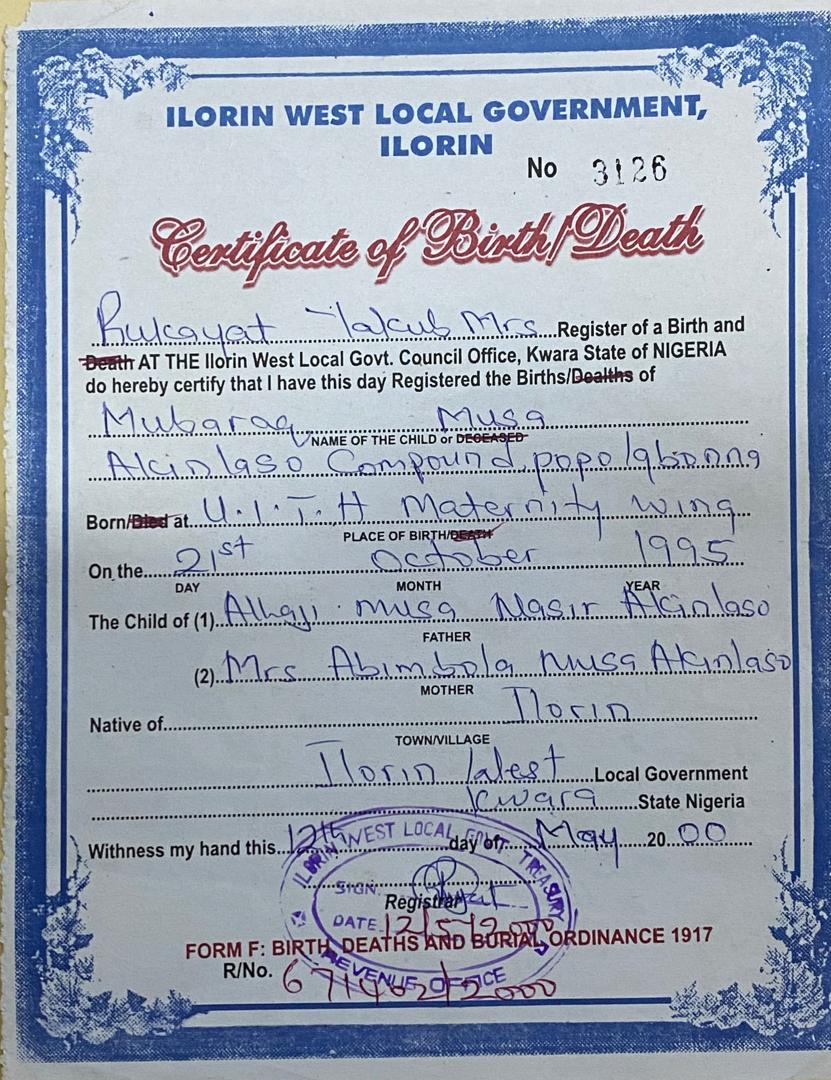 ILORIN WEST LOCAL GOVERNMENT,
ILORIN
No 3126
Certificate of Birth/Death
Rukayat Yakub Mrs Register of a Birth and
Death AT THE Ilorin West Local Govt. Council Office, Kwara State of NIGERIA
do hereby certify that I have this day Registered the Births/Dealths of
Mubaraq Musa
NAME OF THE CHILD or DECEASED
Akinlaso Compound, popo Igbonna
Born/Died at U.I.T.H Maternity wing
PLACE OF BIRTH/DEATH
On the 21st October 1995
DAY MONTH YEAR
The Child of (1) Alhaji Musa Nasir Akinlaso
FATHER
(2) Mrs Abimbola Musa Akinlaso
MOTHER
Native of Ilorin
TOWN/VILLAGE
Ilorin West Local Government
Kwara State Nigeria
Witness my hand this 12th day of May 2000
ILORIN WEST LOCAL GOVT. TREASURY
SIGN.
Registrar
DATE 12/5/2000
FORM F: BIRTH, DEATHS AND BURIAL ORDINANCE 1917
REVENUE OFFICE
R/No.